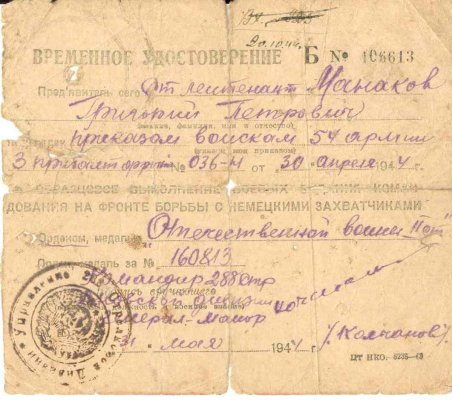 20.10.44
ВРЕМЕННОЕ УДОСТОВЕРЕНИЕ Б № 106613
Пред'явитель сего ст лейтенант Манаков
Григорий Петрович
приказом войскам 54 армии
3 прибалт фронт № 036-Н от 30 апреля 1944 г.
ОБРАЗЦОВОЕ ВЫПОЛНЕНИЕ БОЕВЫХ КОМАН
ДОВАНИЯ НА ФРОНТЕ БОРЬБЫ С НЕМЕЦКИМИ ЗАХВАТЧИКАМИ
Орденом, медаль Отечественной войны II ст
Орден, медаль за № 160813
Командир 288 стр
дивизии
генерал-майор /Колчанов/
31 мая 1944 г.
Управление
ЦТ НКО. 5235-43